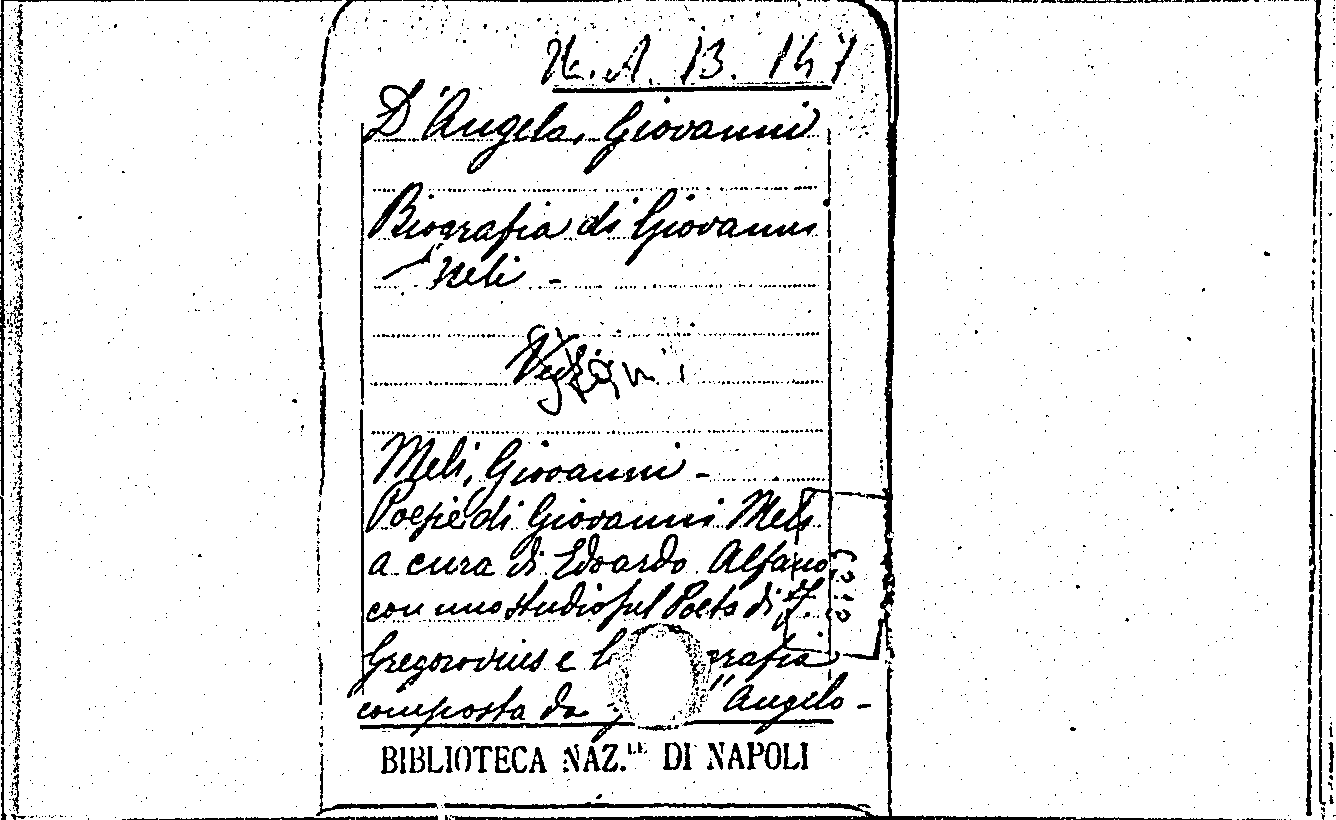 13. 147
D'Angelo, Giovanni
Biografia di Giovanni
Meli -
Meli, Giovanni -
Poesie di Giovanni Meli
a cura di Edoardo Alfano
con uno studio sul Poeta di F.
Gregorovius e grafia
composta da Angelo -
BIBLIOTECA NAZ.LE DI NAPOLI